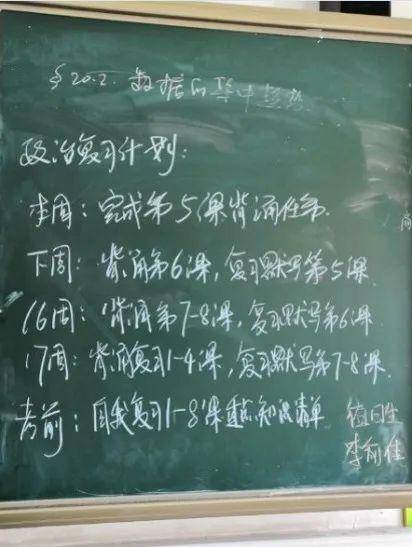 §20.2. 数据的集中趋势
政治复习计划:
本周: 完成第5课背诵任务.
下周: 背诵第6课, 复习默写第5课.
16周: 背诵第7-8课, 复习默写第6课
17周: 背诵复习1-4课, 复习默写第7-8课.
考前: 自我复习1-8课重点知识清单
值日生